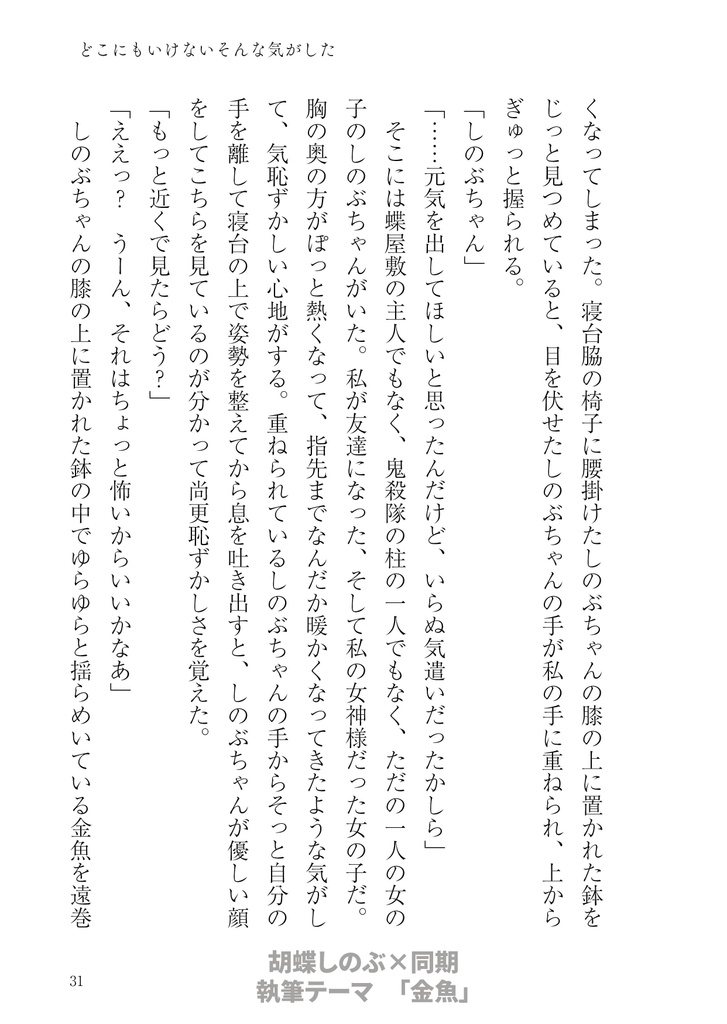 どこにもいけないそんな気がした
くなってしまった。寝台脇の椅子に腰掛けたしのぶちゃんの膝の上に置かれた鉢を
じっと見つめていると、目を伏せたしのぶちゃんの手が私の手に重ねられ、上から
ぎゅっと握られる。
「しのぶちゃん」
「……元気を出してほしいと思ったんだけど、いらぬ気遣いだったかしら」
　そこには蝶屋敷の主人でもなく、鬼殺隊の柱の一人でもなく、ただの一人の女の
子のしのぶちゃんがいた。私が友達になった、そして私の女神様だった女の子だ。
胸の奥の方がぽっと熱くなって、指先までなんだか暖かくなってきたような気がし
て、気恥ずかしい心地がする。重ねられているしのぶちゃんの手からそっと自分の
手を離して寝台の上で姿勢を整えてから息を吐き出すと、しのぶちゃんが優しい顔
をしてこちらを見ているのが分かって尚更恥ずかしさを覚えた。
「もっと近くで見たらどう？」
「ええっ？　うーん、それはちょっと怖いからいいかなあ」
　しのぶちゃんの膝の上に置かれた鉢の中でゆらゆらと揺らめいている金魚を遠巻
31
胡蝶しのぶ×同期
執筆テーマ　「金魚」